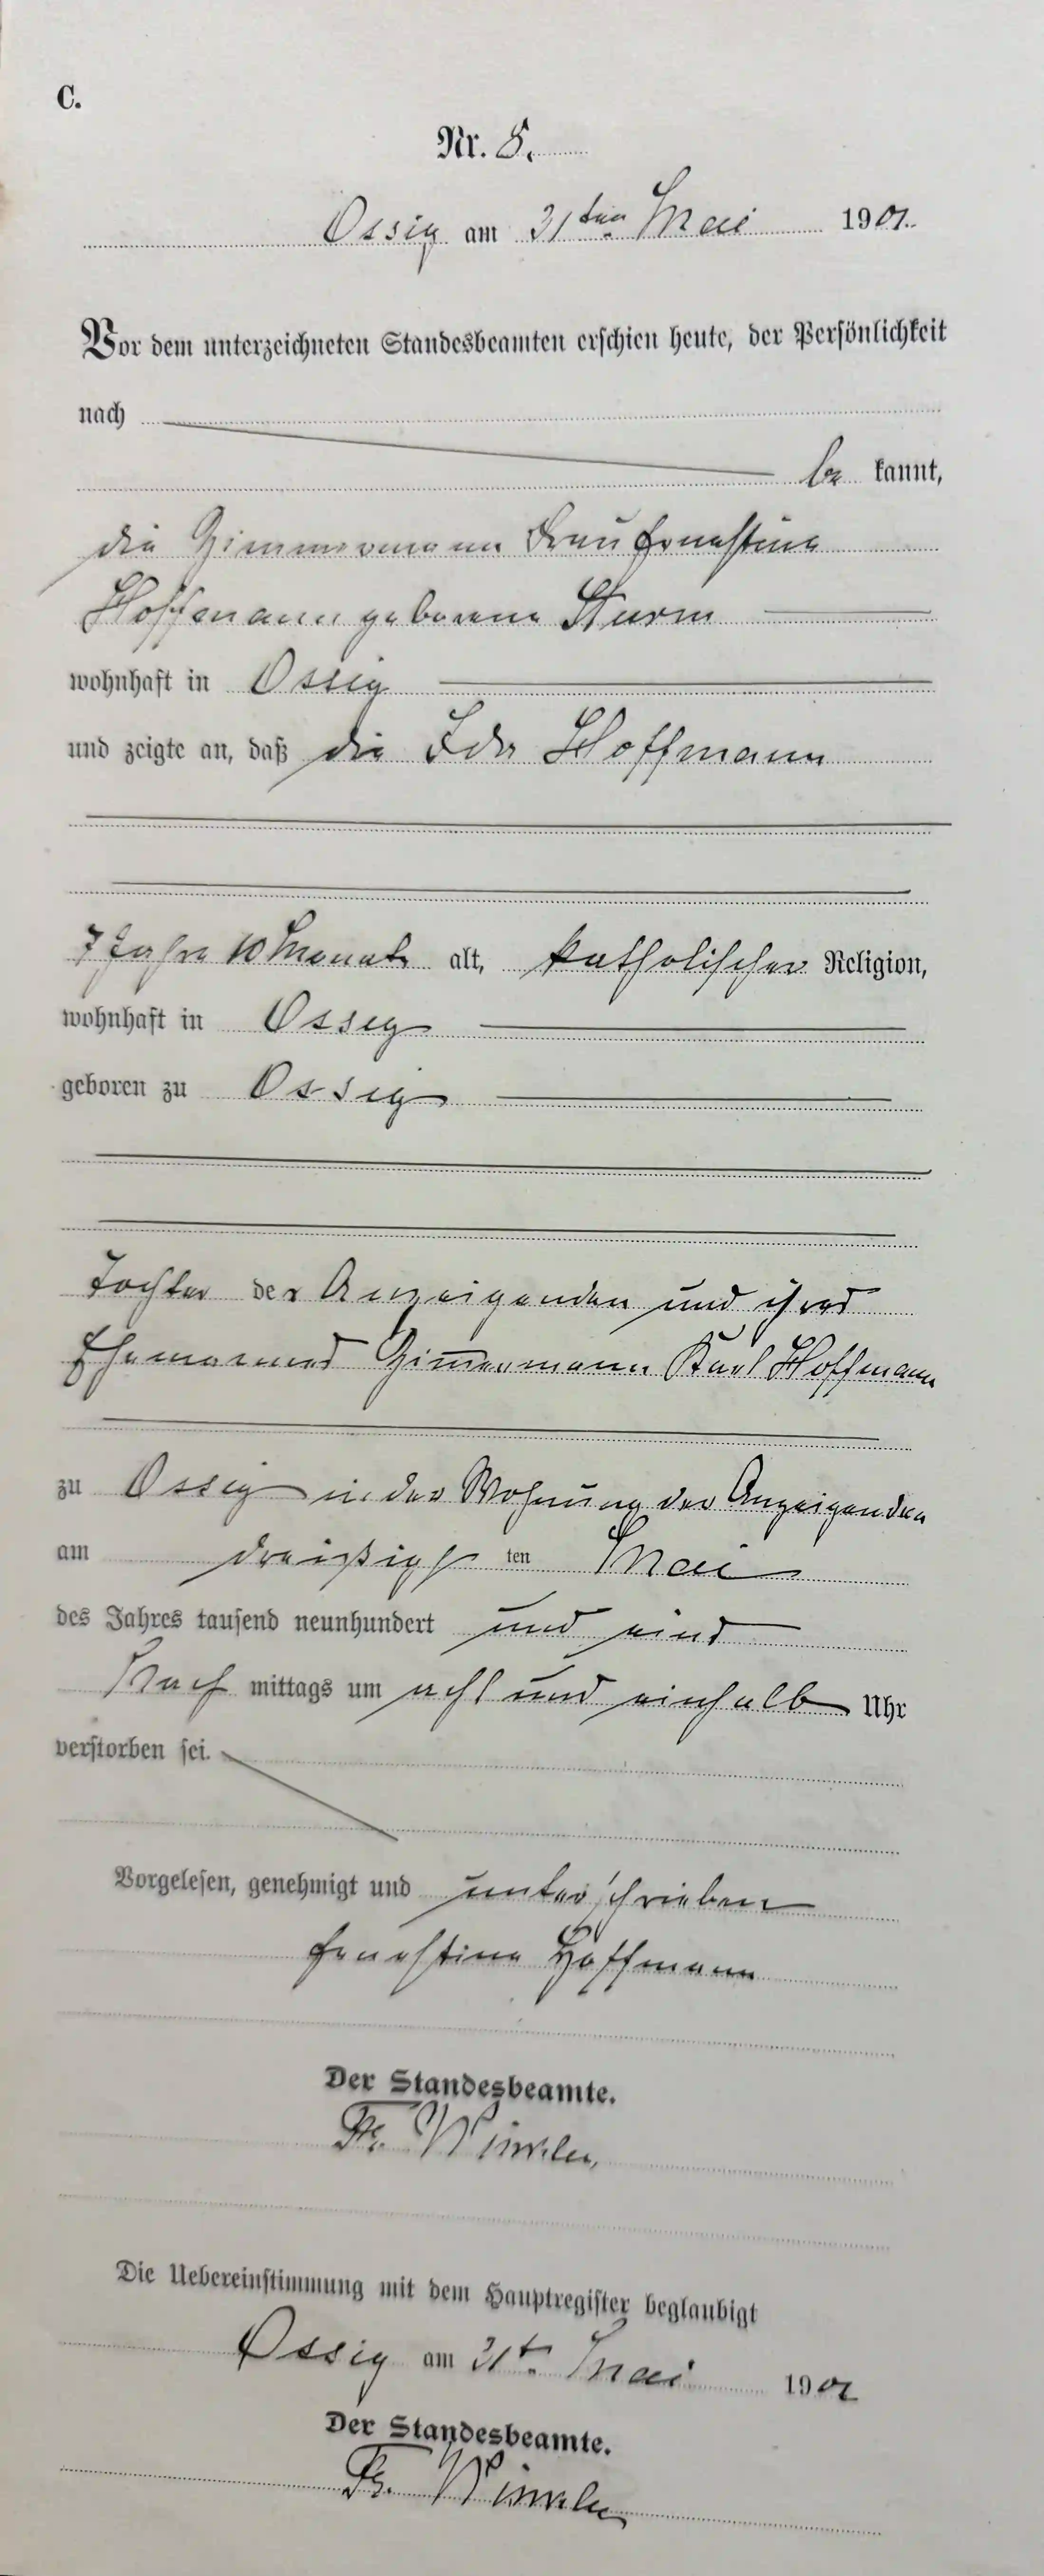 C.
Nr. 8.
Ossig am 31ten Mai 1901.
Vor dem unterzeichneten Standesbeamten erschien heute, der Persönlichkeit
nach
be kannt,
die Zimmermann Frau Ernestine
Hoffmann geborene Sturm
wohnhaft in Ossig
und zeigte an, daß die Ida Hoffmann
7 Jahre 10 Monate alt, katholischer Religion,
wohnhaft in Ossig
geboren zu Ossig
Tochter der Anzeigenden und ihres
Ehemannes Zimmermann Karl Hoffmann
zu Ossig in der Wohnung der Anzeigenden
am dreißigs ten Mai
des Jahres tausend neunhundert und eins
Nach mittags um acht und einhalb Uhr
verstorben sei.
Vorgelesen, genehmigt und unterschrieben
Ernestine Hoffmann
Der Standesbeamte.
Fr. Winkler,
Die Uebereinstimmung mit dem Hauptregister beglaubigt
Ossig am 31t. Mai 1901
Der Standesbeamte.
Fr. Winkler